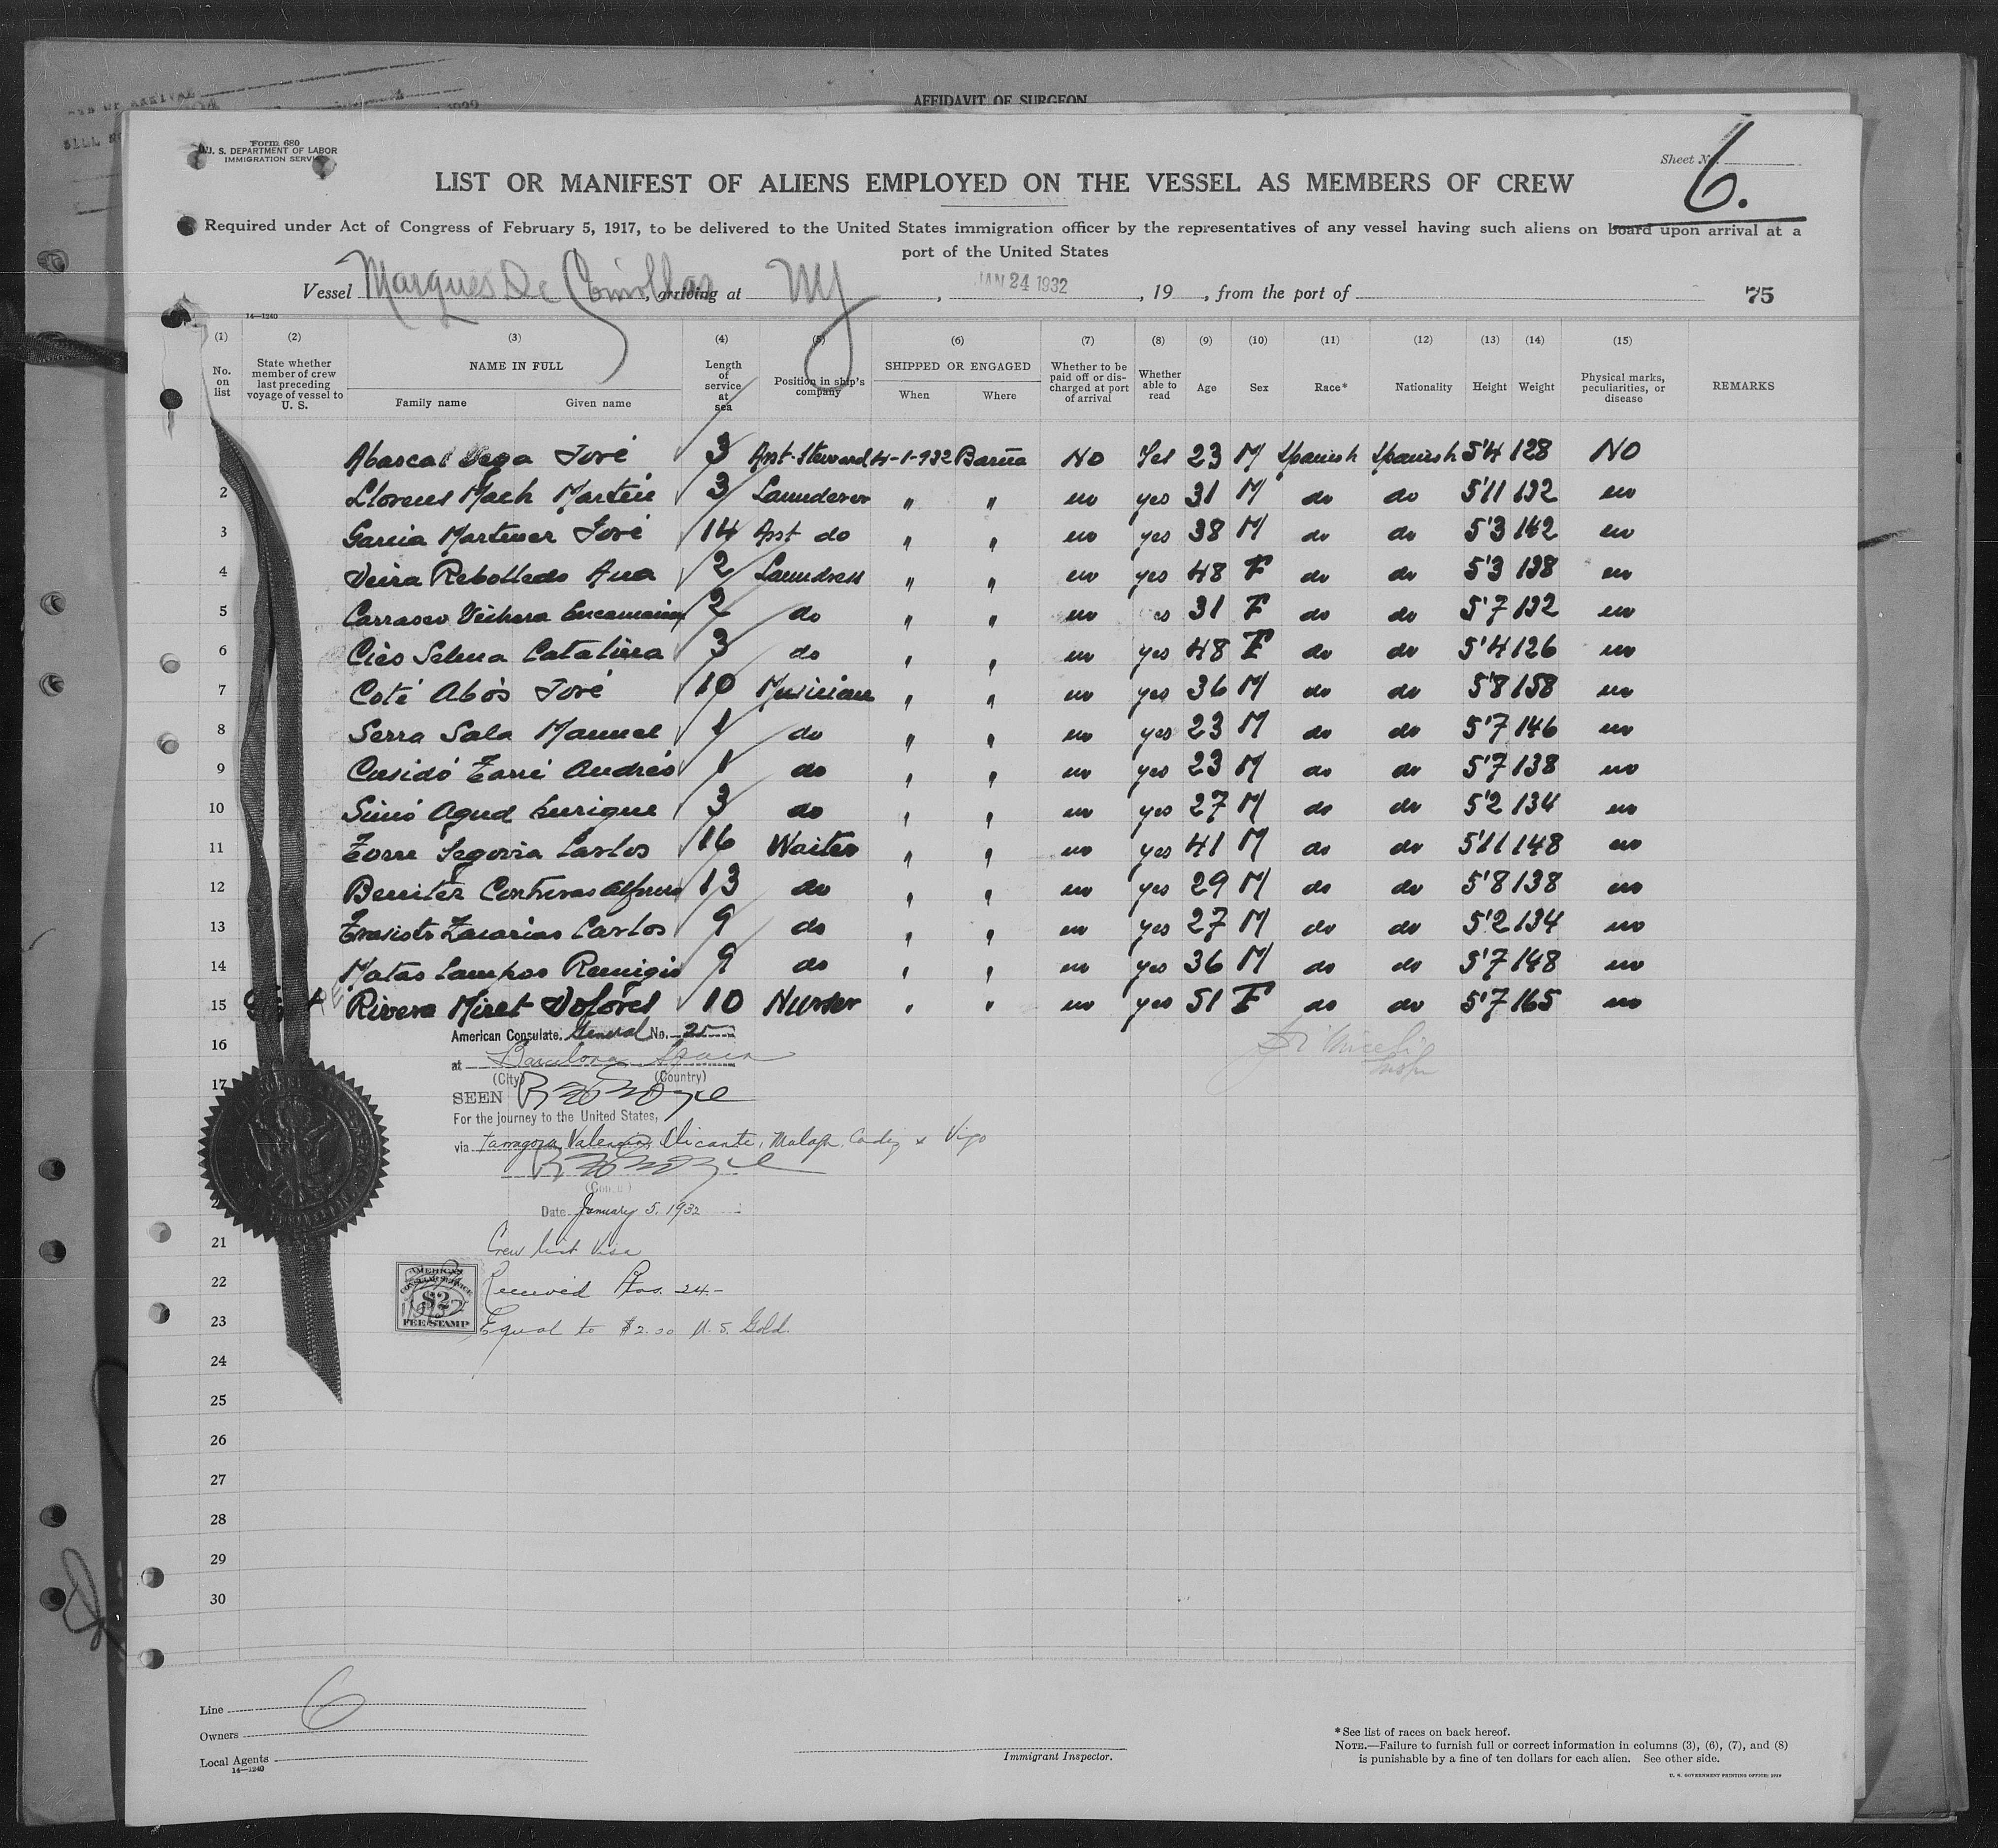 AFFIDAVIT OF SURGEON
Form 680
U. S. DEPARTMENT OF LABOR
IMMIGRATION SERVICE
Sheet No. 6.
LIST OR MANIFEST OF ALIENS EMPLOYED ON THE VESSEL AS MEMBERS OF CREW
Required under Act of Congress of February 5, 1917, to be delivered to the United States immigration officer by the representatives of any vessel having such aliens on board upon arrival at a
port of the United States
Vessel Marques De Comillas, arriving at NY, JAN 24 1932, 19, from the port of 75
14—1240
(1) (2) (3) (4) (5) (6) (7) (8) (9) (10) (11) (12) (13) (14) (15)
No. on list State whether member of crew last preceding voyage of vessel to U. S. NAME IN FULL Family name Given name Length of service at sea Position in ship's company SHIPPED OR ENGAGED When Where Whether to be paid off or discharged at port of arrival Whether able to read Age Sex Race* Nationality Height Weight Physical marks, peculiarities, or disease REMARKS
Abascal Vega José 3 Asst. Steward 4-1-932 Barña NO Yes 23 M Spanish Spanish 5'4 128 NO
2 Llorens Mach Martin 3 Launderer " " no yes 31 M do do 5'11 132 no
3 Garcia Martinez José 14 Asst do " " no yes 38 M do do 5'3 142 no
4 Veira Rebolledo Ana 2 Laundress " " no yes 48 F do do 5'3 138 no
5 Carrasco Encarnacion 2 do " " no es 31 F do do 5'7 132 no
6 Catalina 3 do " " no yes 48 F do do 5'4 126 no
7 Coté Abós José 10 Musician " " no yes 36 M do do 5'8 158 no
8 Serra Sala Manuel 1 do " " no yes 23 M do do 5'7 146 no
9 Cusidó Andrés 1 do " " no yes 23 M do do 5'7 138 no
10 Simó Agud Enrique 3 do " " no yes 27 M do do 5'2 134 no
11 Torre Segovia Carlos 16 Waiter " " no yes 41 M do do 5'11 148 no
12 Benitez Contreras Alfonso 13 do " " no yes 29 M do do 5'8 138 no
13 Zacarias Carlos 9 do " " no yes 27 M do do 5'2 134 no
14 Matas Campos Remigio 9 do " " no yes 36 M do do 5'7 148 no
15 Rivera Miret Dolores 10 Nurse " " no yes 51 F do do 5'7 165 no
American Consulate General No. 25
16
at Barcelona Spain
(City) (Country)
17
SEEN
For the journey to the United States,
via Tarragona, Valencia, Alicante, Malaga, Cadiz & Vigo
Date January 5, 1932
21
Crew list Visa
AMERICAN CONSULAR SERVICE $2 FEE STAMP
22
Received Ptas. 24.-
23
Equal to $2.00 U.S. Gold.
24
25
26
27
28
29
30
Line 6
Owners
Local Agents
14—1240
Immigrant Inspector.
* See list of races on back hereof.
NOTE.—Failure to furnish full or correct information in columns (3), (6), (7), and (8)
is punishable by a fine of ten dollars for each alien. See other side.
U. S. GOVERNMENT PRINTING OFFICE: 1929